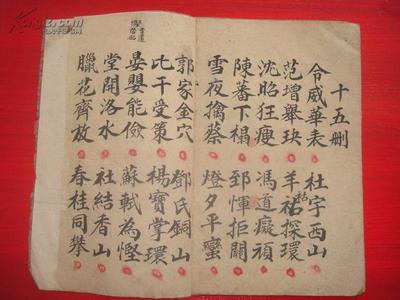 十五刪
令威華表 杜宇西山
范增舉玦 羊祜探環
沈昭狂瘦 馮道癡頑
陳蕃下榻 郅惲拒關
雪夜擒蔡 燈夕平蠻
郭家金穴 鄧氏銅山
比干受策 楊寶掌環
晏嬰能儉 蘇軾為慳
堂開洛水 社結香山
臘花齊放 春桂同攀